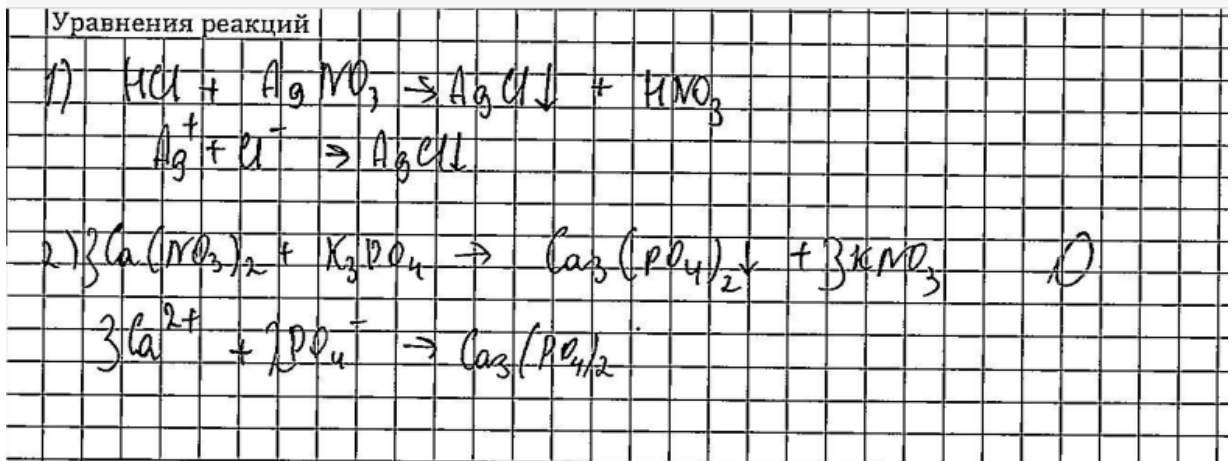 Уравнения реакций
1) HCl + AgNO₃ → AgCl↓ + HNO₃
Ag⁺ + Cl⁻ → AgCl↓
2) 3Ca(NO₃)₂ + K₃PO₄ → Ca₃(PO₄)₂↓ + 3KNO₃ 0
3Ca²⁺ + 2PO₄⁻ → Ca₃(PO₄)₂